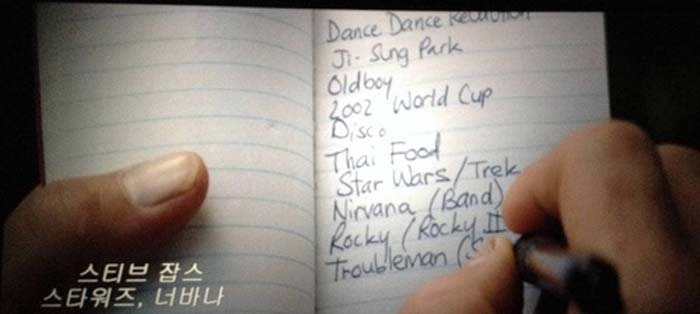 Dance Dance Revolution
Ji-Sung Park
Oldboy
2002 World Cup
Disco
Thai Food
Star Wars/Trek
Nirvana (Band)
Rocky (Rocky II
Troubleman (
스티브 잡스
스타워즈, 너바나